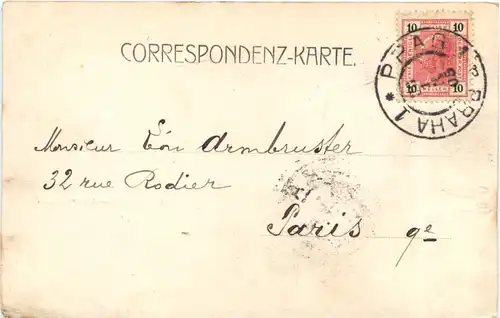 CORRESPONDENZ-KARTE.
10 10
10 10
PRAG 1 * PRAHA 1 *
Monsieur Eón Armbruster
32 rue Rodier
Paris 9e